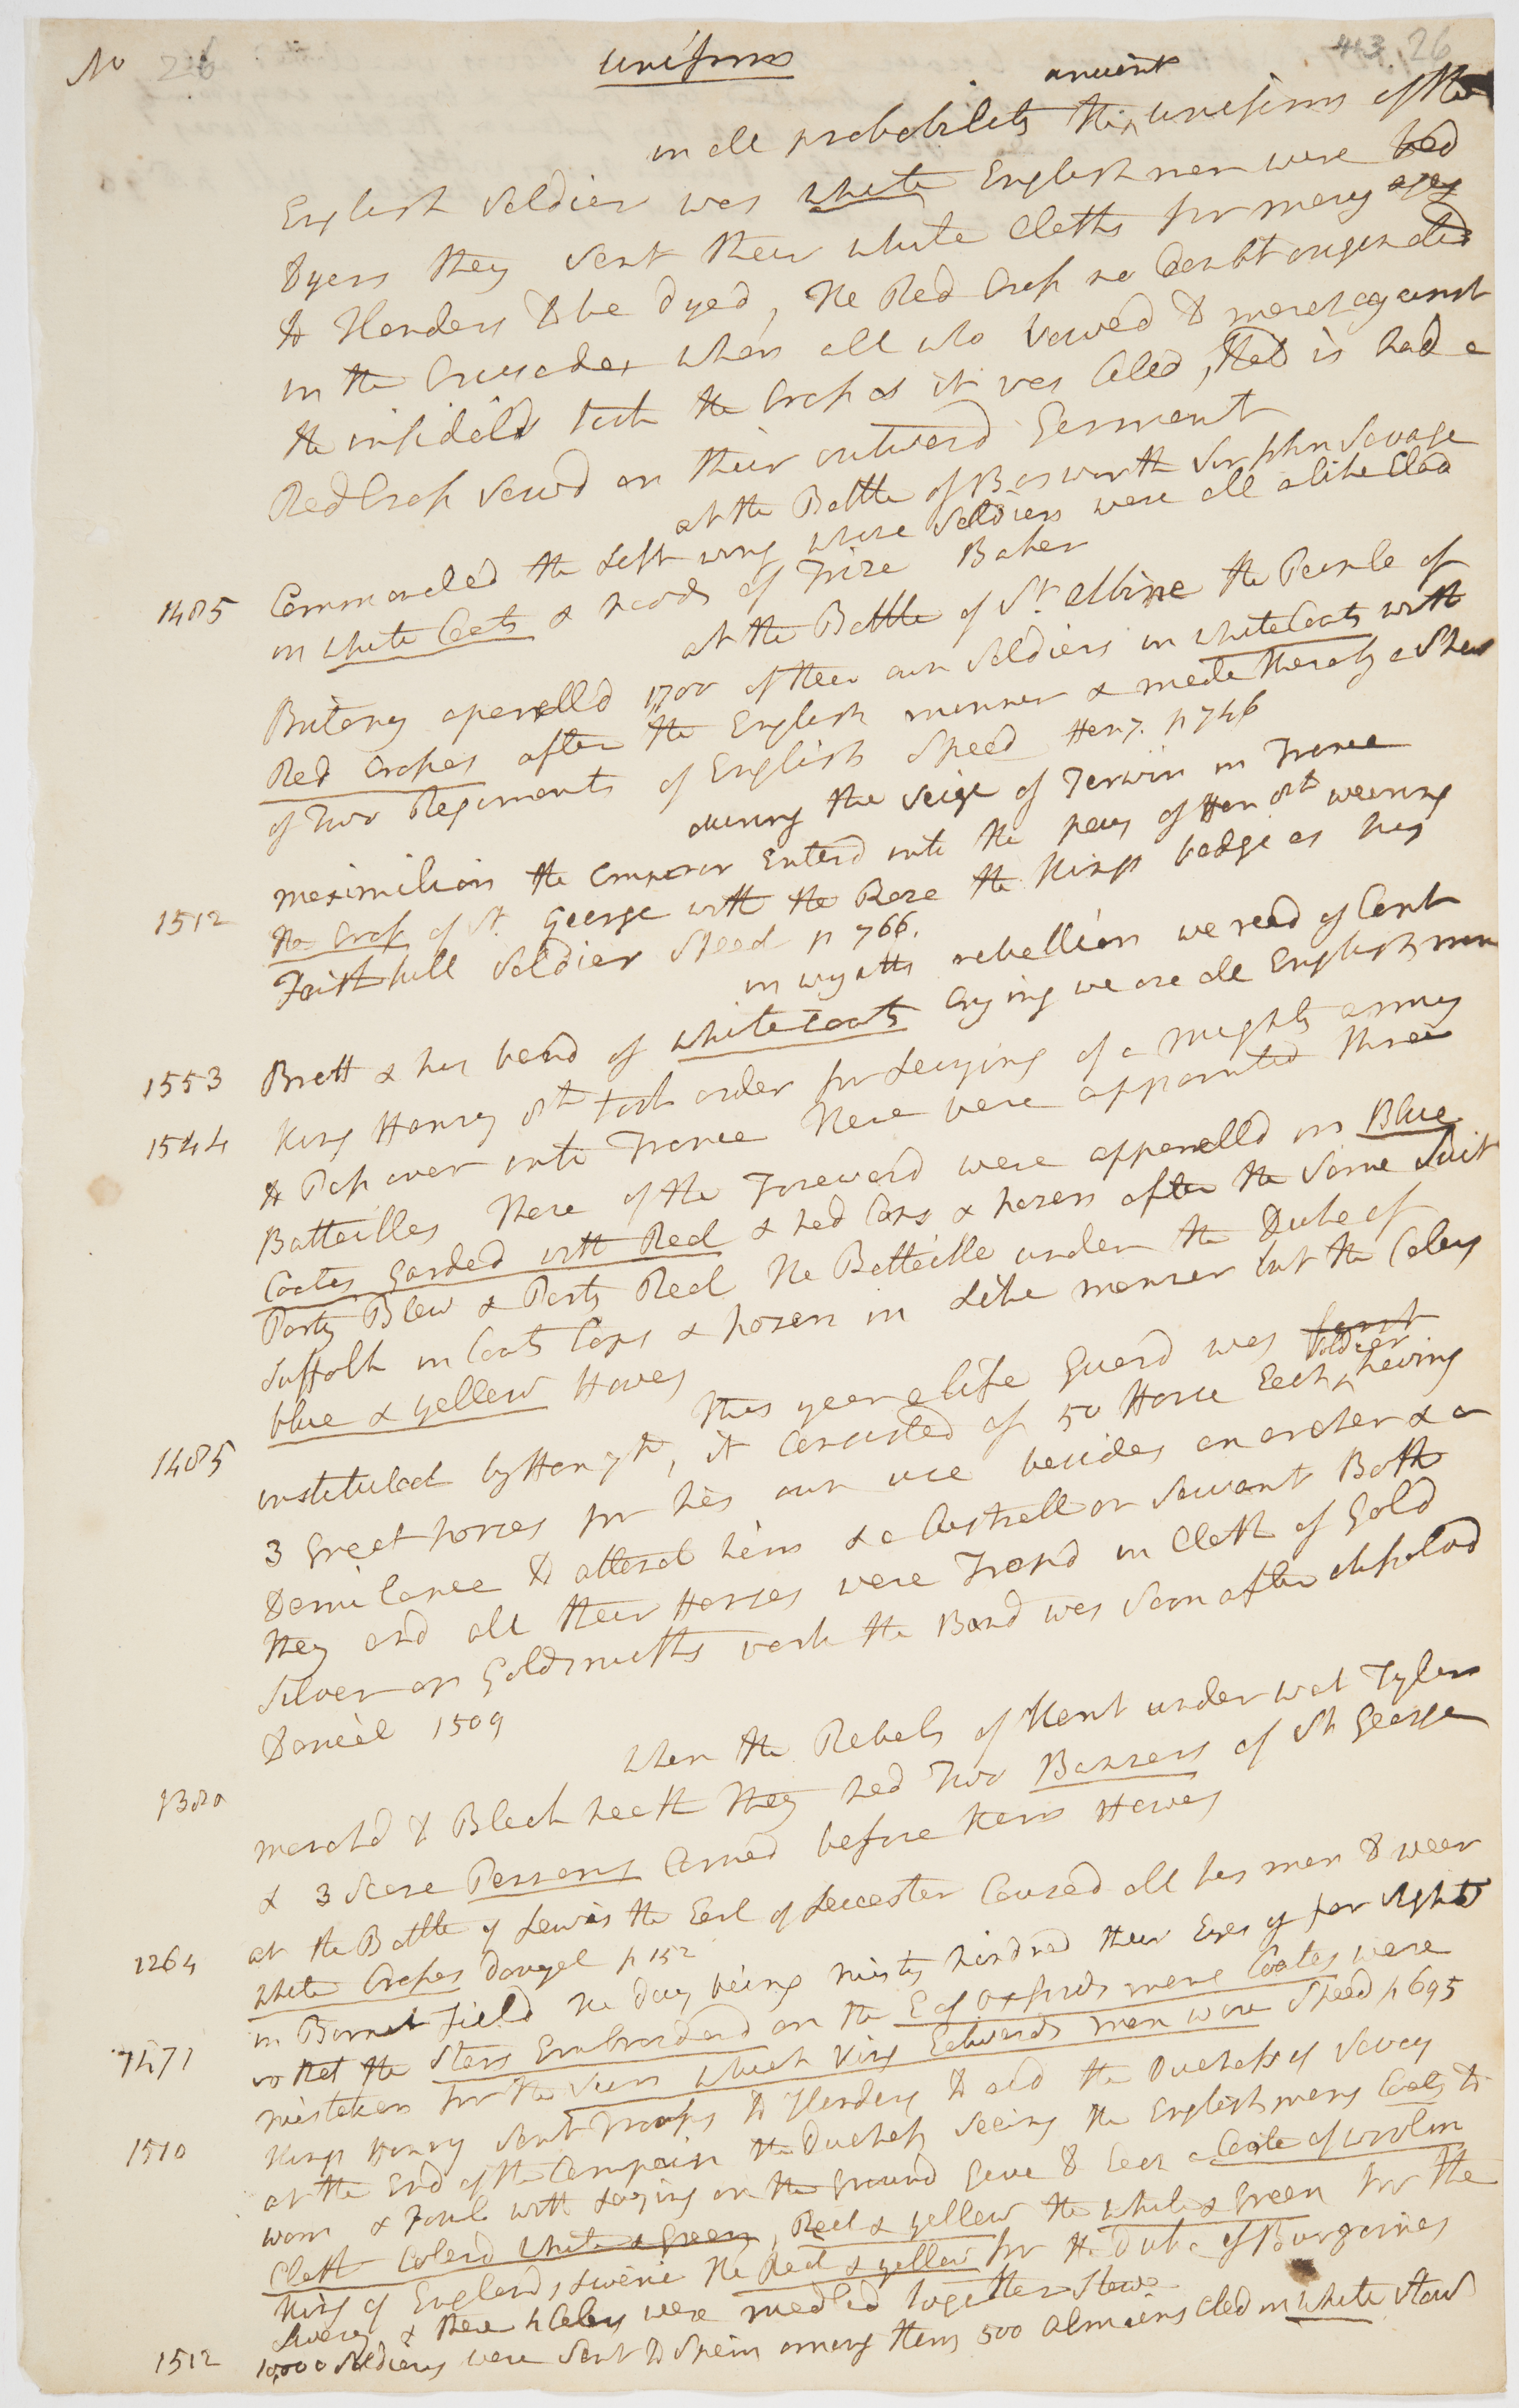 No 26
uniforms
443 26
in all probability the ancient uniform of the
English Soldier was white Englishmen were bad
Dyers they sent their white Cloths for many ages
to Flanders to be dyed, The Red Cross no doubt originated
in the Crusades when all who vowed to march against
the infidels took the Cross as it was Calld, that is had a
Red Cross sewd on their outward Garment
at the Battle of Bosworth Sir John Savage
1485 Commanded the Left wing whose Soldiers were all alike Clad
in white Coats & hoods of Frize Baker
at the Battle of St. Albine the People of
Britany aparelld 1700 of their own Soldiers in white Coats with
Red Crosses after the English manner & made therby a Shew
of Two Regiments of English Speed Hen 7. p 746
during the Seige of Terwin in France
1512 Maximilian the Emperor Enterd into the pay of Hen 8th wearing
the Cross of St. George with the Rose the Kings badge as his
Faithfull Soldier Speed p 766.
in wyatts rebellion we read of Capt
1553 Brett & his band of white Coats Crying we are all English men
1544 King Henry 8th took order for Levying of a mighty army
to Pass over into France there were appointed three
Battailles those of the Foreward were apparelld in Blue
Coates garded with Red & had Caps & hosen after the same Suit
Party Blew & Party Red the Battaille under the Duke of
Suffolk in Coats Caps & hosen in Like manner but the Colors
blue & yellow Howes
1485 This year a life Guard was first
instituted by Hen 7th, it Consisted of 50 Horse Each Soldier having
3 Great horses for his own use besides an archer & a
Demi lance to attend him & a Custrell or Servant Both
they and all their Horses were Trapd in Cloth of Gold
Silver or Goldsmiths work the Band was soon after disolvd
Daniel 1509
1380 when the Rebels of Kent under wat Tyler
marchd to Black heath they had Two Banners of St George
& 3 Score Penons Carried before them Howes
1264 at the Battle of Lewis the Earl of Leicester Caused all his men to wear
white Crosses p 152
1471 in Barnet Field the day being misty hindred their Eyes of far sight
so that the Stars Embroiderd on the E of Oxfords mens Coates were
mistaken for the Suns which King Edwards men wore Speed p 695
1510 King Henry sent Troops to Flanders to aid the Duchess of Savoy
at the End of the Campain the Duchess seeing the English mens Coats to
worn & Foul with Laying on the ground gave to Each a Coate of woolen
Cloth Colerd white & green, Red & yellow the white & green for the
King of Englands Liverie the Red & yellow for the Duke of Burgoines
Livery & these 4 Colors were medled together Stow
1512 10,000 Soldiers were sent to Spain among them 500 Almains clad in white Stow